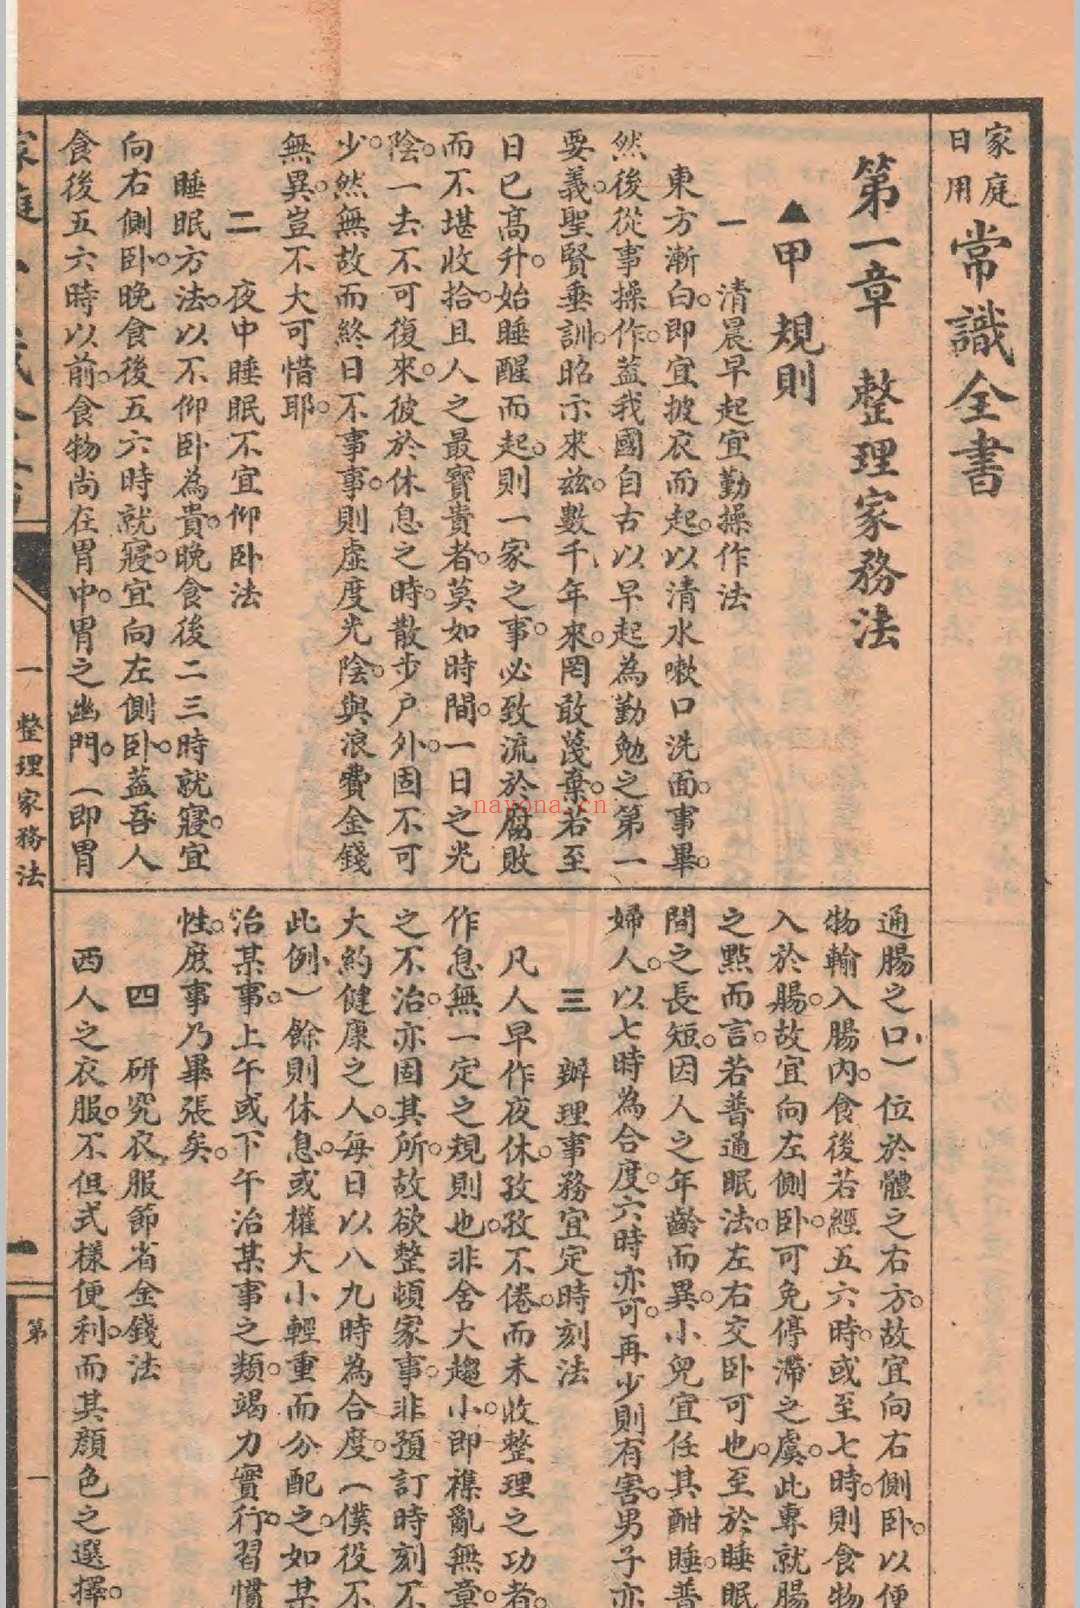 家庭
日用
常識全書
第一章　整理家務法
▲甲　規則
一　清晨早起宜勤操作法
東方漸白。即宜披衣而起。以清水嗽口洗面。事畢。
然後從事操作。蓋我國自古以早起為勤勉之第一
要義。聖賢垂訓。昭示來茲。數千年來。罔敢蔑棄。若至
日已高升。始睡醒而起。則一家之事。必致流於腐敗
而不堪收拾。且人之最寶貴者。莫如時間。一日之光
陰。一去不可復來。彼於休息之時。散步戶外。固不可
少。然無故而終日不事事。則虛度光陰。與浪費金錢
無異。豈不大可惜耶。
二　夜中睡眠不宜仰卧法
睡眠方法。以不仰卧為貴。晚食後二三時就寢。宜
向右側卧。晚食後五六時就寢。宜向左側卧。蓋吾人
食後五六時以前。食物尚在胃中。胃之幽門。（即胃
通腸之口）位於體之右方。故宜向右側卧。以便
物輸入腸內。食後若經五六時。或至七時。則食物
入於腸。故宜向左側卧。可免停滯之虞。此專就腸
之點而言。若普通眠法。左右交卧可也。至於睡眠
間之長短。因人之年齡而異。小兒宜任其酣睡。普
婦人。以七時為合度。六時亦可。再少則有害。男子亦
三　辦理事務宜定時刻法
凡人早作夜休。孜孜不倦。而未收整理之功者。
作息無一定之規則也。非舍大趨小。即襍亂無章。
之不治。亦固其所。故欲整頓家事。非預訂時刻不
大約健康之人。每日以八九時為合度。（僕役不
此例）餘則休息。或權大小輕重而分配之。如某
治某事。上午或下午治某事之類。竭力實行。習慣
性。庶事乃畢張矣。
四　研究衣服節省金錢法
西人之衣服。不但式樣便利。而其顔色之選擇。
一　整理家務法
一
第
一
nayona.cn